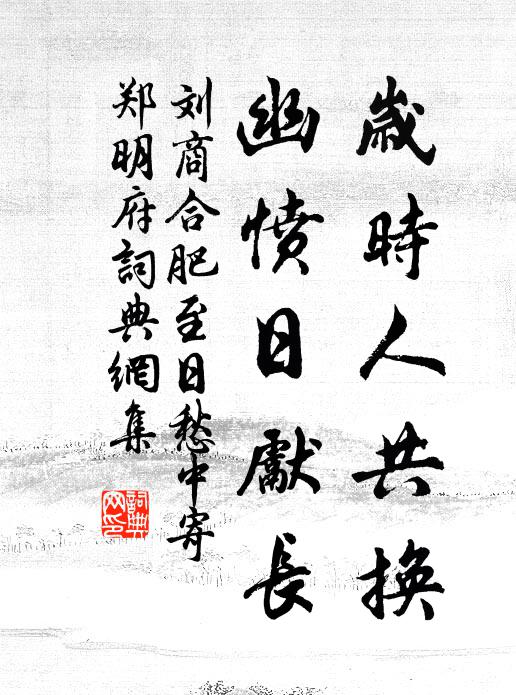 歲時人共換
幽憤日獻長
刘商合肥至日愁中寄
郑明府詞典網集
詞典网印